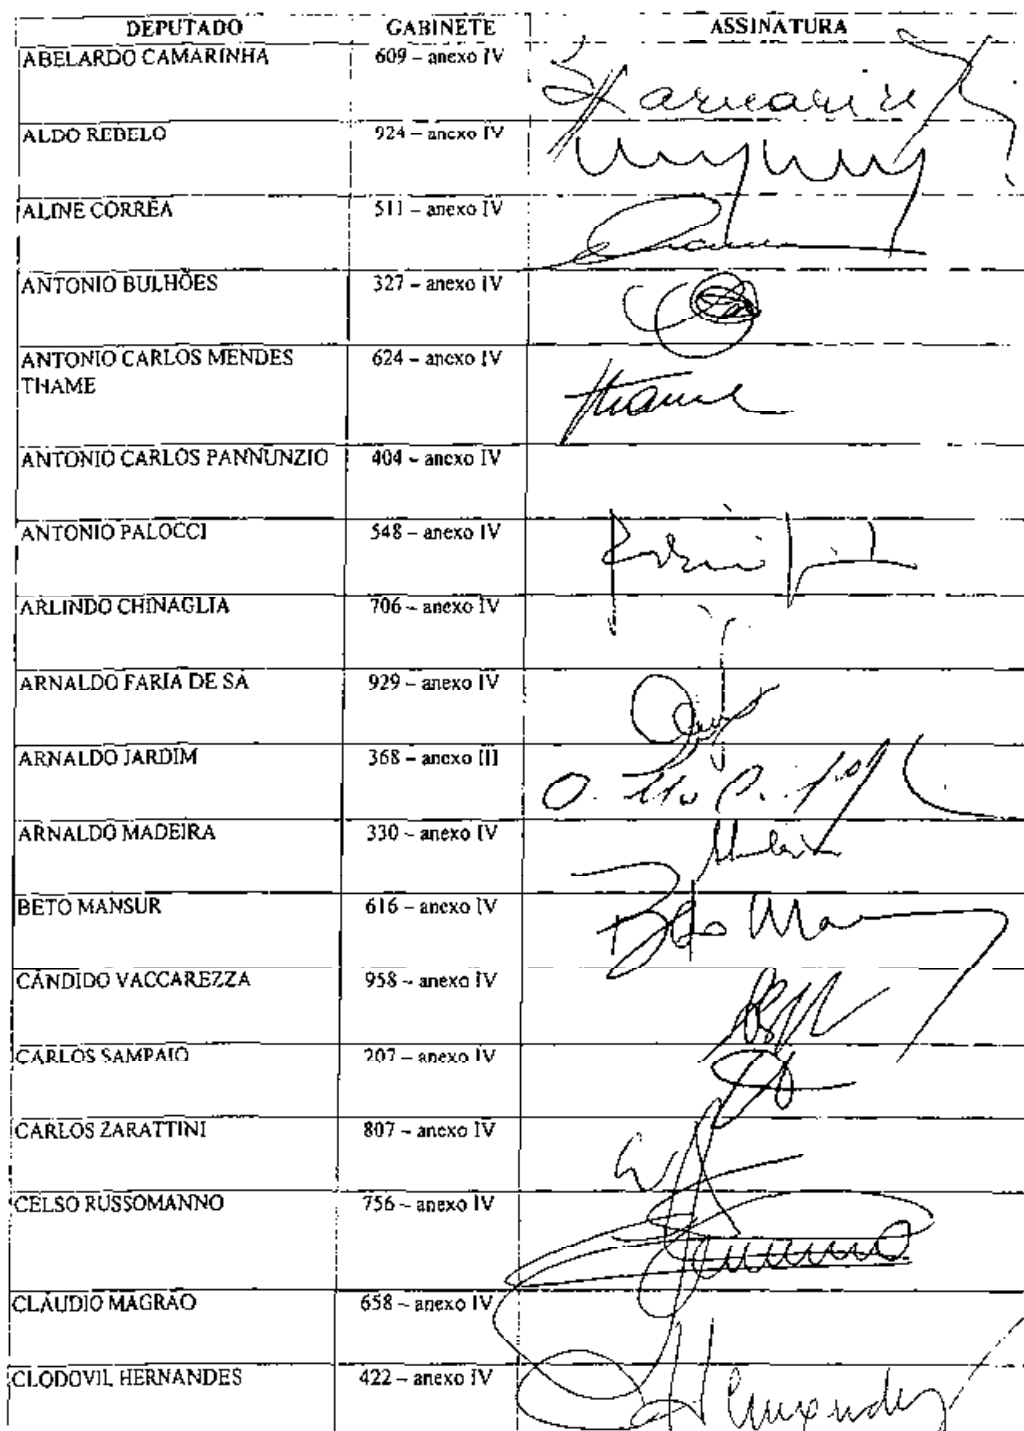 DEPUTADO GABINETE ASSINATURA
ABELARDO CAMARINHA 609 – anexo IV
ALDO REBELO 924 – anexo IV
ALINE CORRÊA 511 – anexo IV
ANTONIO BULHÕES 327 – anexo IV
ANTONIO CARLOS MENDES 624 – anexo IV
THAME
Thame
ANTONIO CARLOS PANNUNZIO 404 – anexo IV
ANTONIO PALOCCI 548 – anexo IV
ARLINDO CHINAGLIA 706 – anexo IV
ARNALDO FARIA DE SÁ 929 – anexo IV
ARNALDO JARDIM 368 – anexo III
ARNALDO MADEIRA 330 – anexo IV
BETO MANSUR 616 – anexo IV
Beto Man
CÂNDIDO VACCAREZZA 958 – anexo IV
CARLOS SAMPAIO 207 – anexo IV
CARLOS ZARATTINI 807 – anexo IV
CELSO RUSSOMANNO 756 – anexo IV
CLÁUDIO MAGRÃO 658 – anexo IV
CLODOVIL HERNANDES 422 – anexo IV
Hernandez